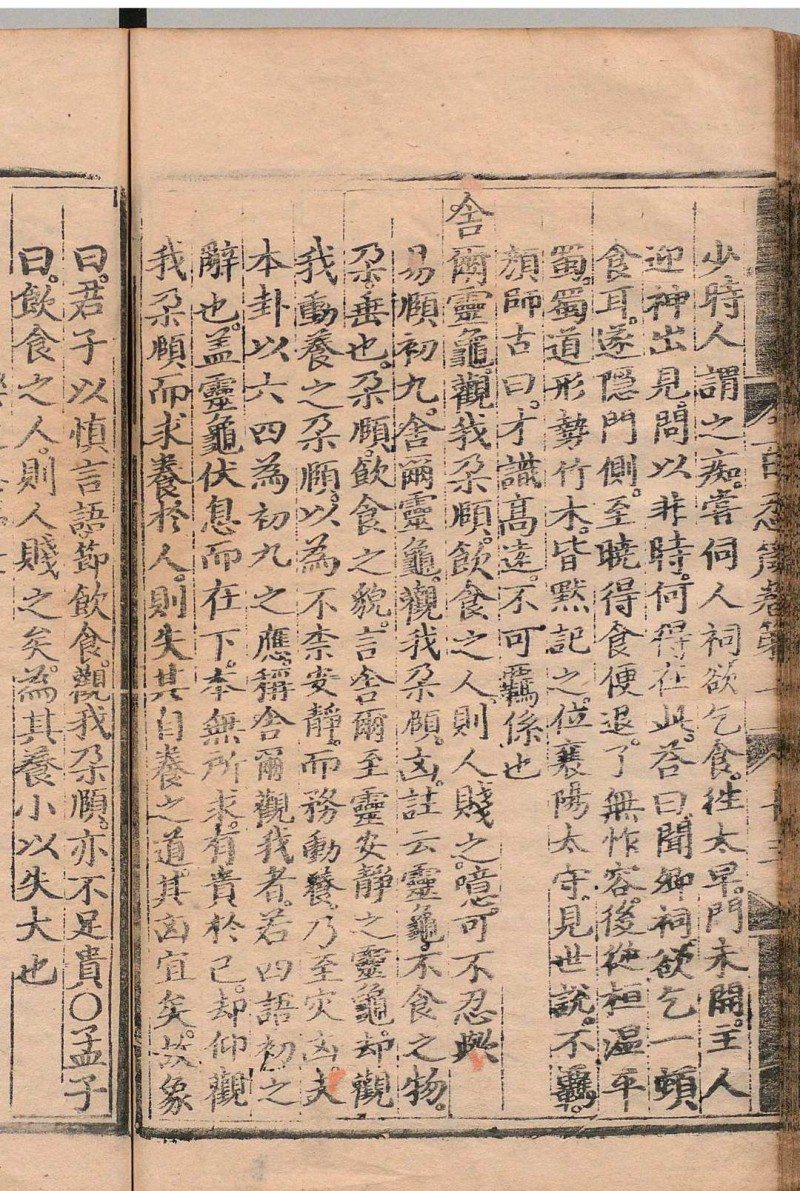 少時人謂之痴。嘗伺人祠欲乞食。徃太早。門未開。主人
迎神出見問以非時。何得在此。荅曰。聞卿祠欲乞一頓
食耳。遂隱門側。至曉得食便退。了無怍容。後從桓温平
蜀。蜀道形勢竹木。皆默記之。位襄陽太守。見世說。不羈。
顏師古曰。才識高遠。不可羈係也
舍爾靈龜。觀我朶頤。飮食之人。則人賤之。噫。可不忍歟
易頤初九。舍爾靈龜。觀我朶頤。凶。註云靈龜。不食之物。
朶。垂也。朶頤。飮食之貌。言舍爾至靈安靜之靈龜。却觀
我動養之朶頤。以為不柰安靜。而務動養。乃至灾凶。夫
本卦以六四為初九之應。稱舍爾觀我者。若四語初之
辭也。盖靈龜伏息而在下。本無所求。有貴於己。却仰觀
我朶頤而求養於人。則失其自養之道。其凶宜矣。故象
曰。君子以慎言語節飮食。觀我朶頤。亦不足貴〇孟子
曰。飮食之人。則人賤之矣。為其養小以失大也